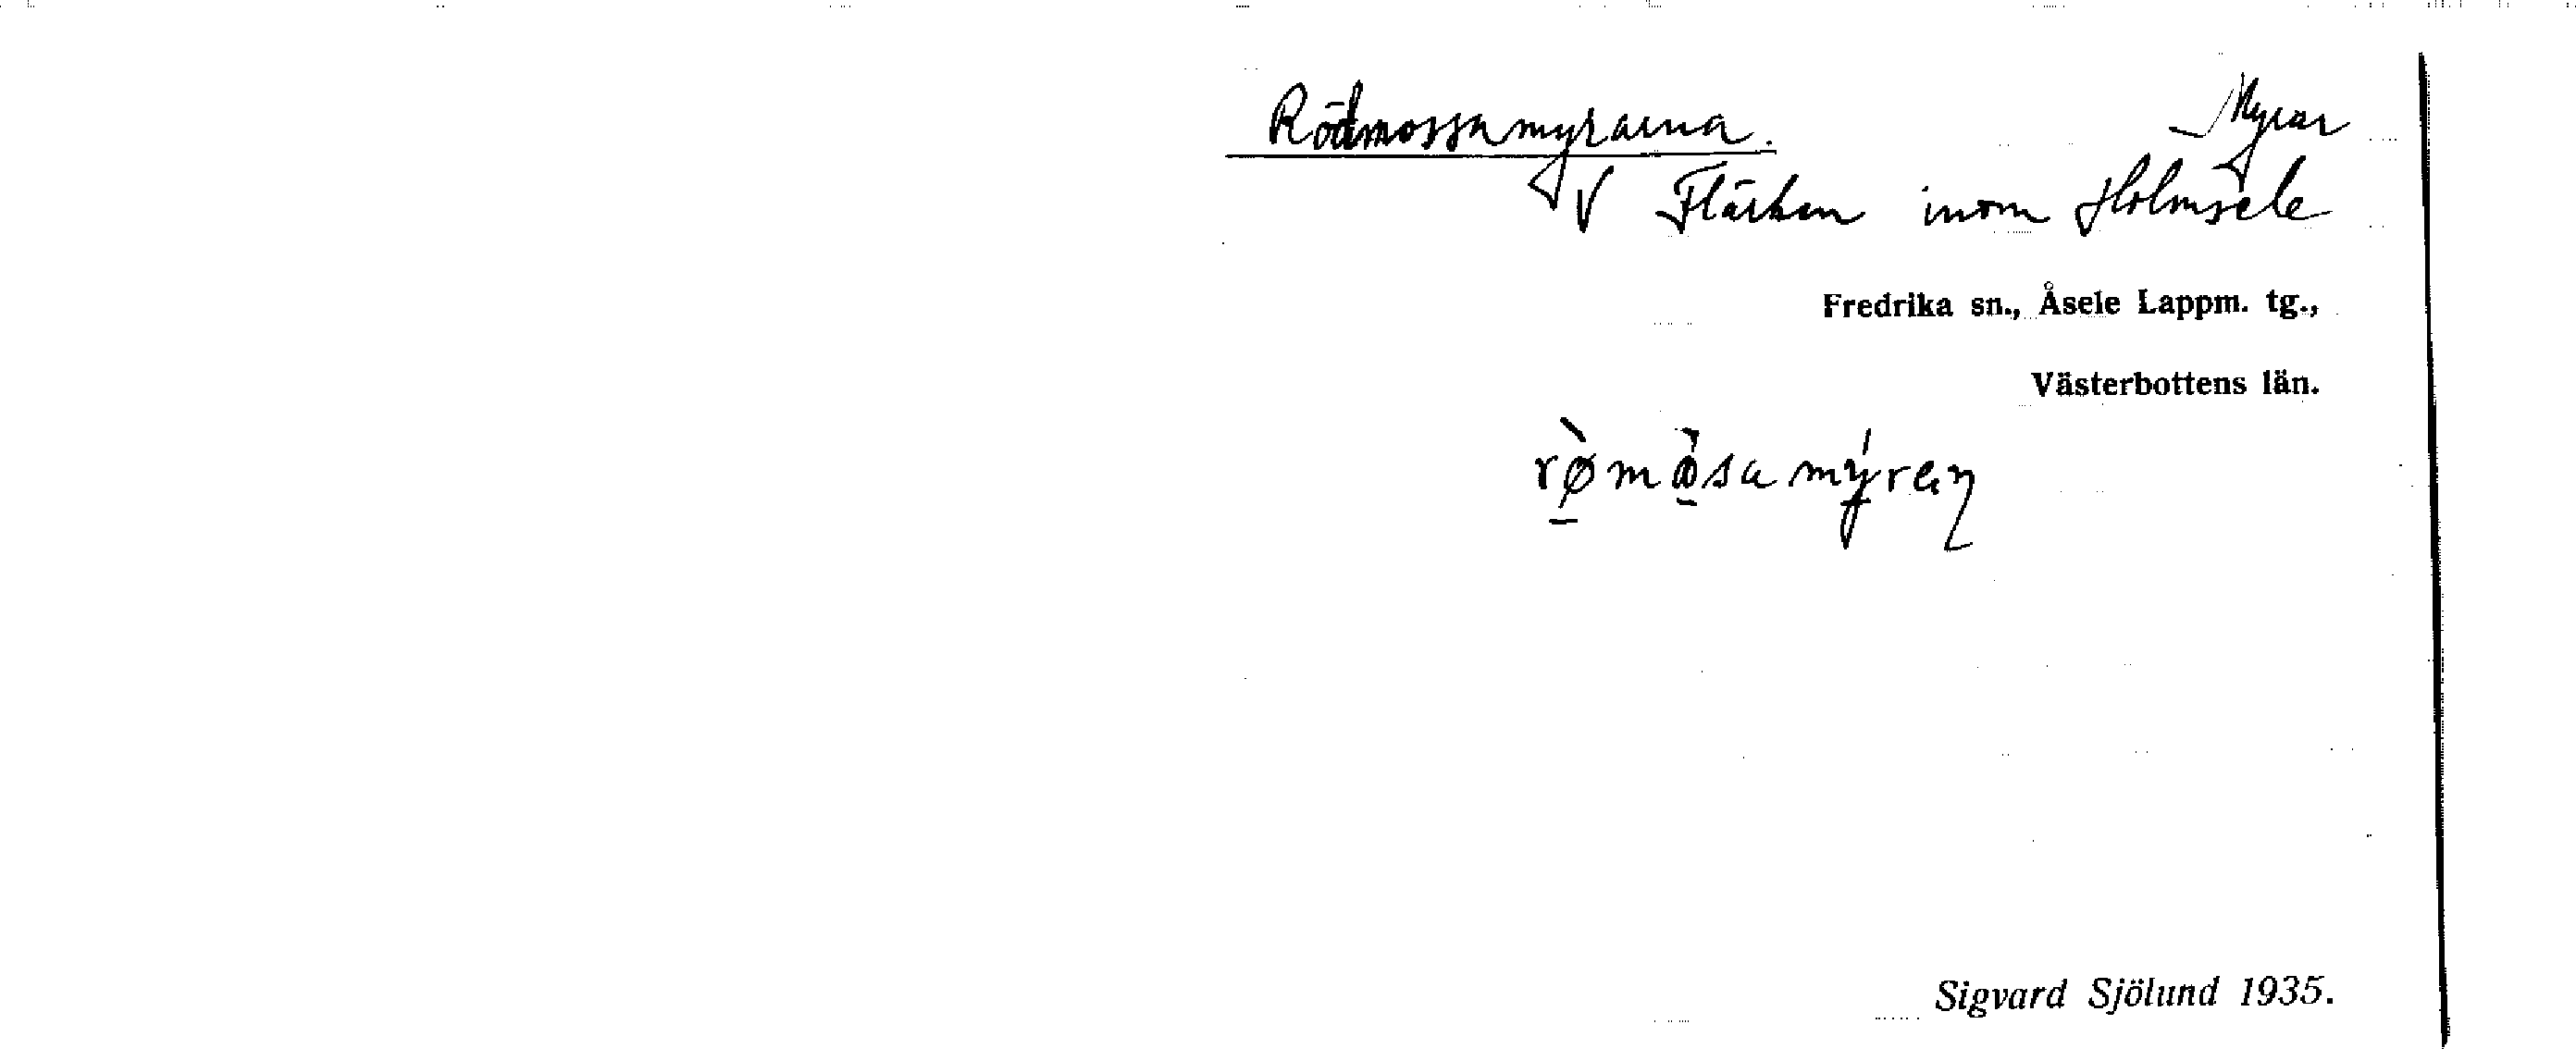 Rödmossamyrarna. Myrar
V Flärken inom Holmsele
Fredrika sn., Åsele Lappm. tg.,
Västerbottens län.
Sigvard Sjölund 1935.